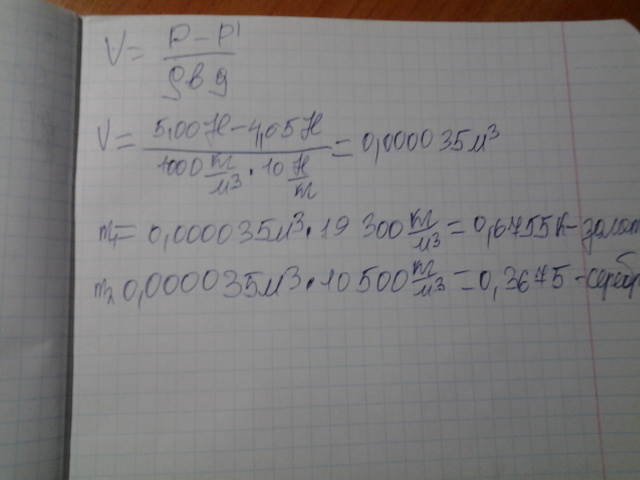 V = P - P¹ / ρв g
V = 5,00 Н - 4,65 Н / 1000 кг/м³ · 10 Н/кг = 0,000035 м³
m₁ = 0,000035 м³ · 19 300 кг/м³ = 0,6755 К - золот
m₂ 0,000035 м³ · 10 500 кг/м³ = 0,3675 - серебр